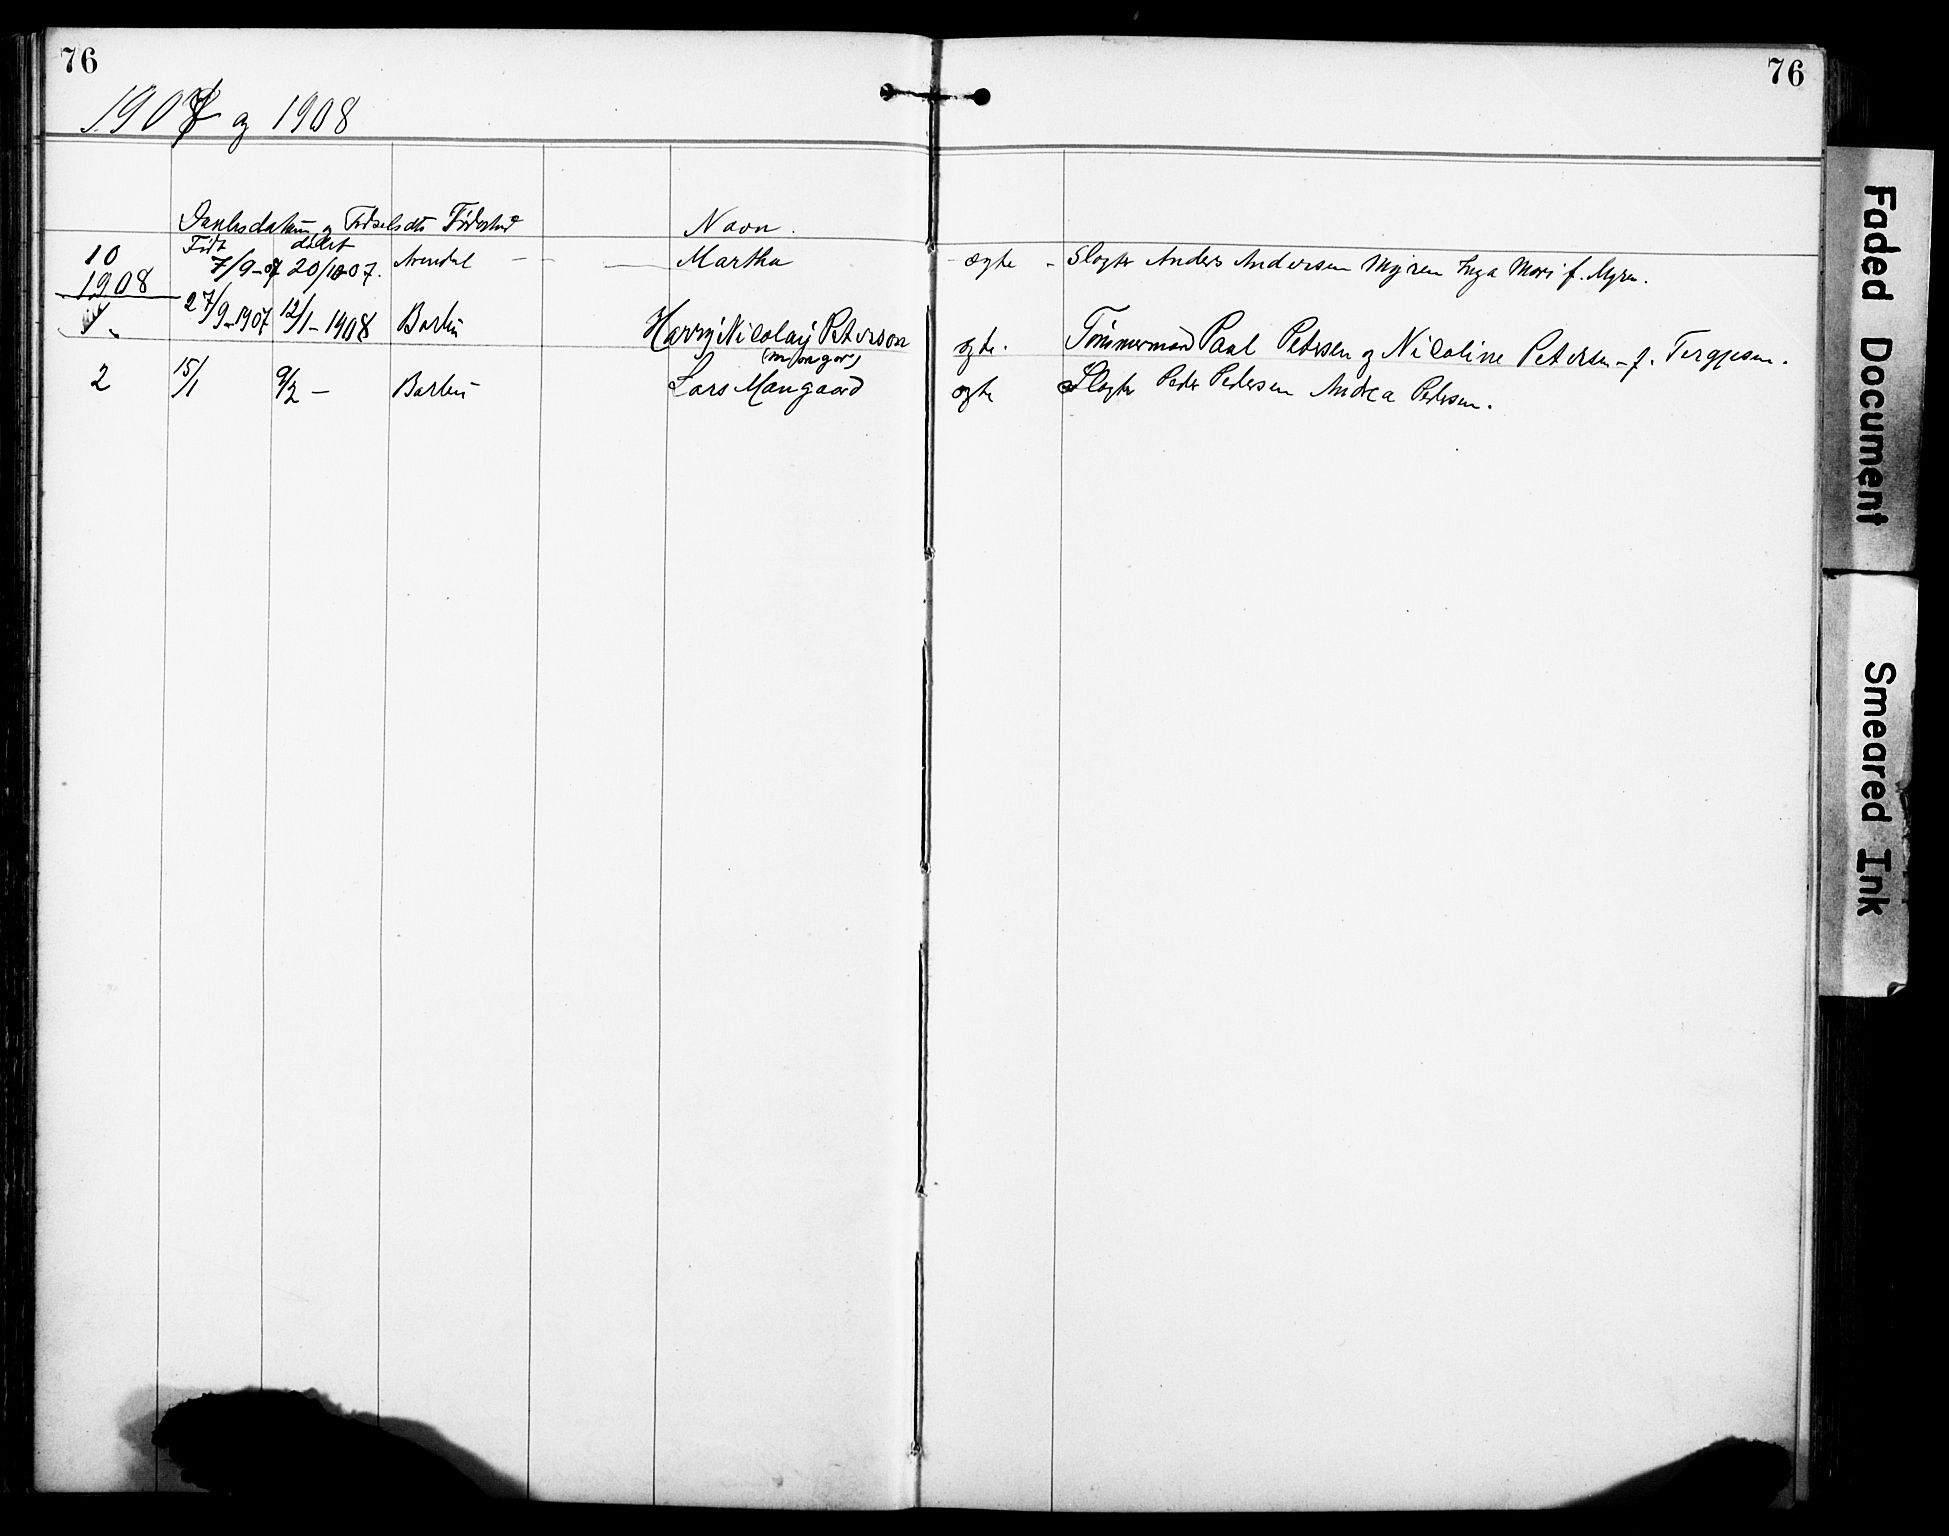 76 76
1907 og 1908
Daabsdatum og Fødselsdts Fødested Navn.
Født døbt
10 7/9-07 20/10-07. Arendal — Martha ægte - Slagter Anders Andersen Myren Inga Marie f. Myren.
1908
1. 27/9-1907 12/1-1908 Barbu Harry Nicolaij Peterson ægte. Tømmermand Paul Petersen og Nicoline Petersen - f. Tergjesen.
2 15/1 9/2 — Barbu Lars Mangaard ægte Slagter Peder Pedersen Andrea Pedersen.
Faded Document
Smeared Ink